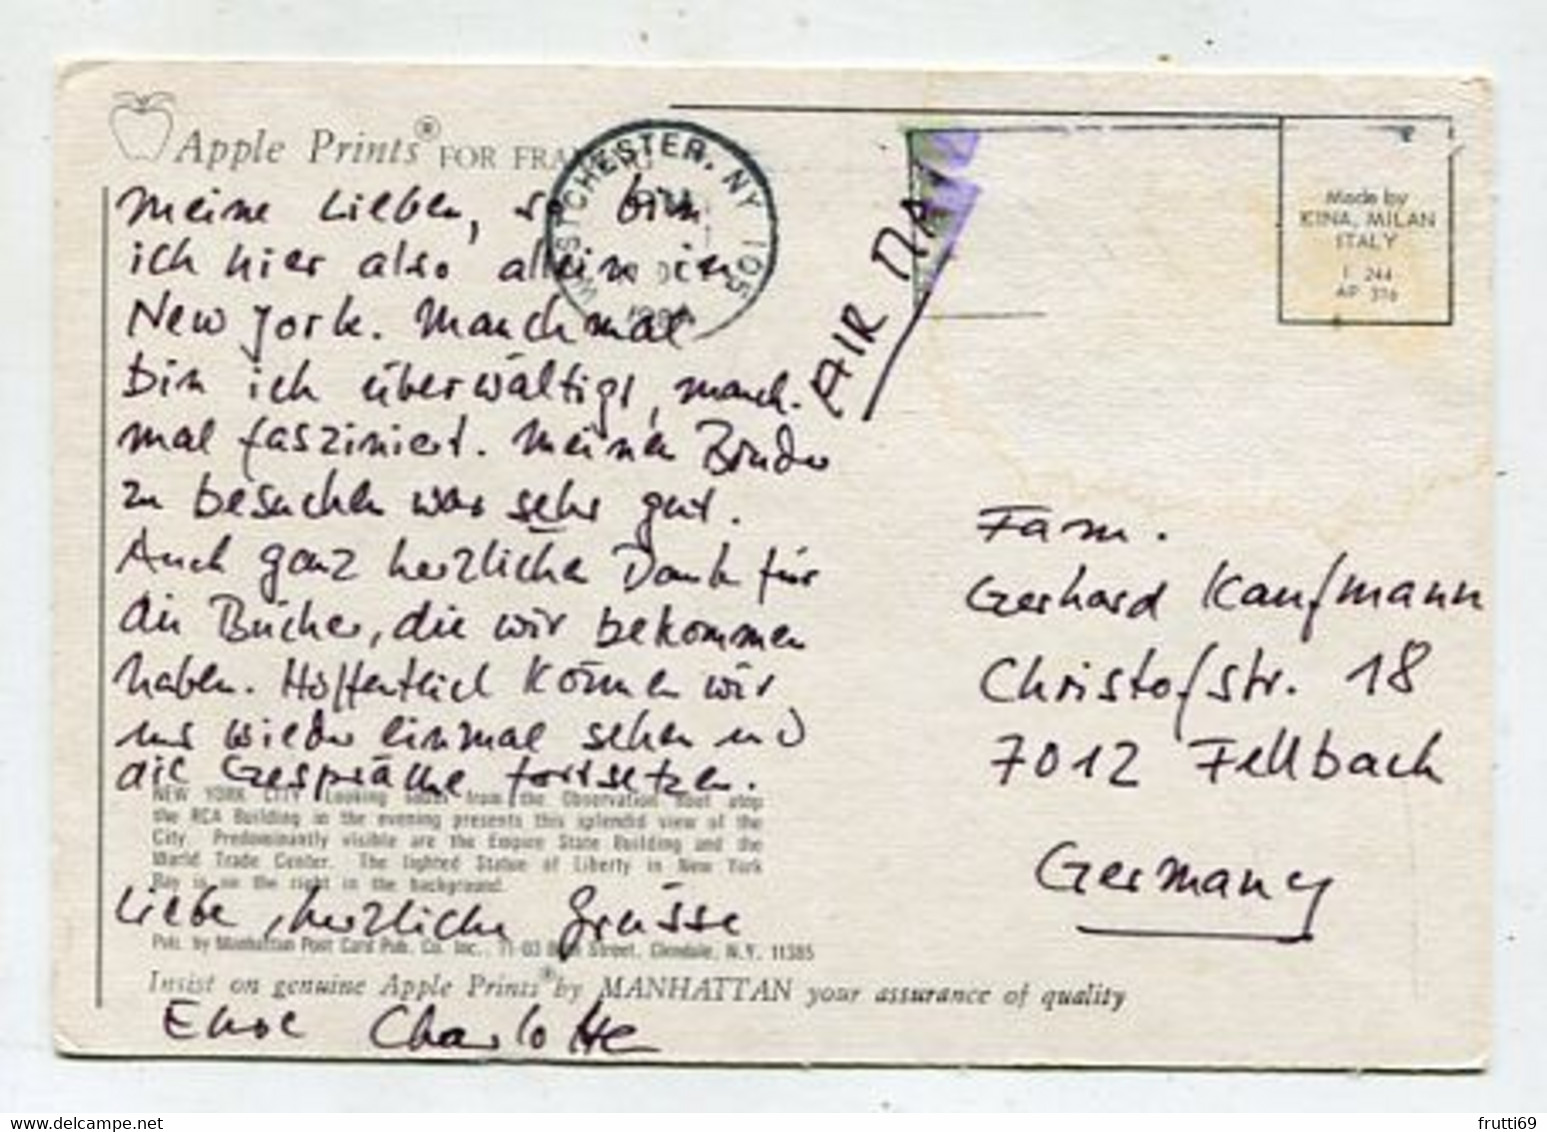 Apple Prints® FOR FRAMING
WESTCHESTER, NY 105
AIR MAIL
Made by
KINA, MILAN
ITALY
Meine Lieben, so bin
ich hier also allein in
New York. Manchmal
bin ich überwältigt, manch-
mal fasziniert. Meinen Bruder
zu besuchen war sehr gut.
Auch ganz herzlichen Dank für
die Bücher, die wir bekommen
haben. Hoffentlich können wir
uns wieder einmal sehen und
die Gespräche fortsetzen.
NEW YORK CITY Looking south from the Observation Roof atop
the RCA Building in the evening presents this splendid view of the
City. Predominantly visible are the Empire State Building and the
World Trade Center. The lighted Statue of Liberty in New York
Bay is on the right in the background.
Liebe, herzliche Grüsse
Pub. by Manhattan Post Card Pub. Co. Inc., 71-03 80th Street, Glendale, N.Y. 11385
Insist on genuine Apple Prints® by MANHATTAN your assurance of quality
Eure Charlotte
Fam.
Gerhard Kaufmann
Christofstr. 18
7012 Fellbach
Germany
frutti69